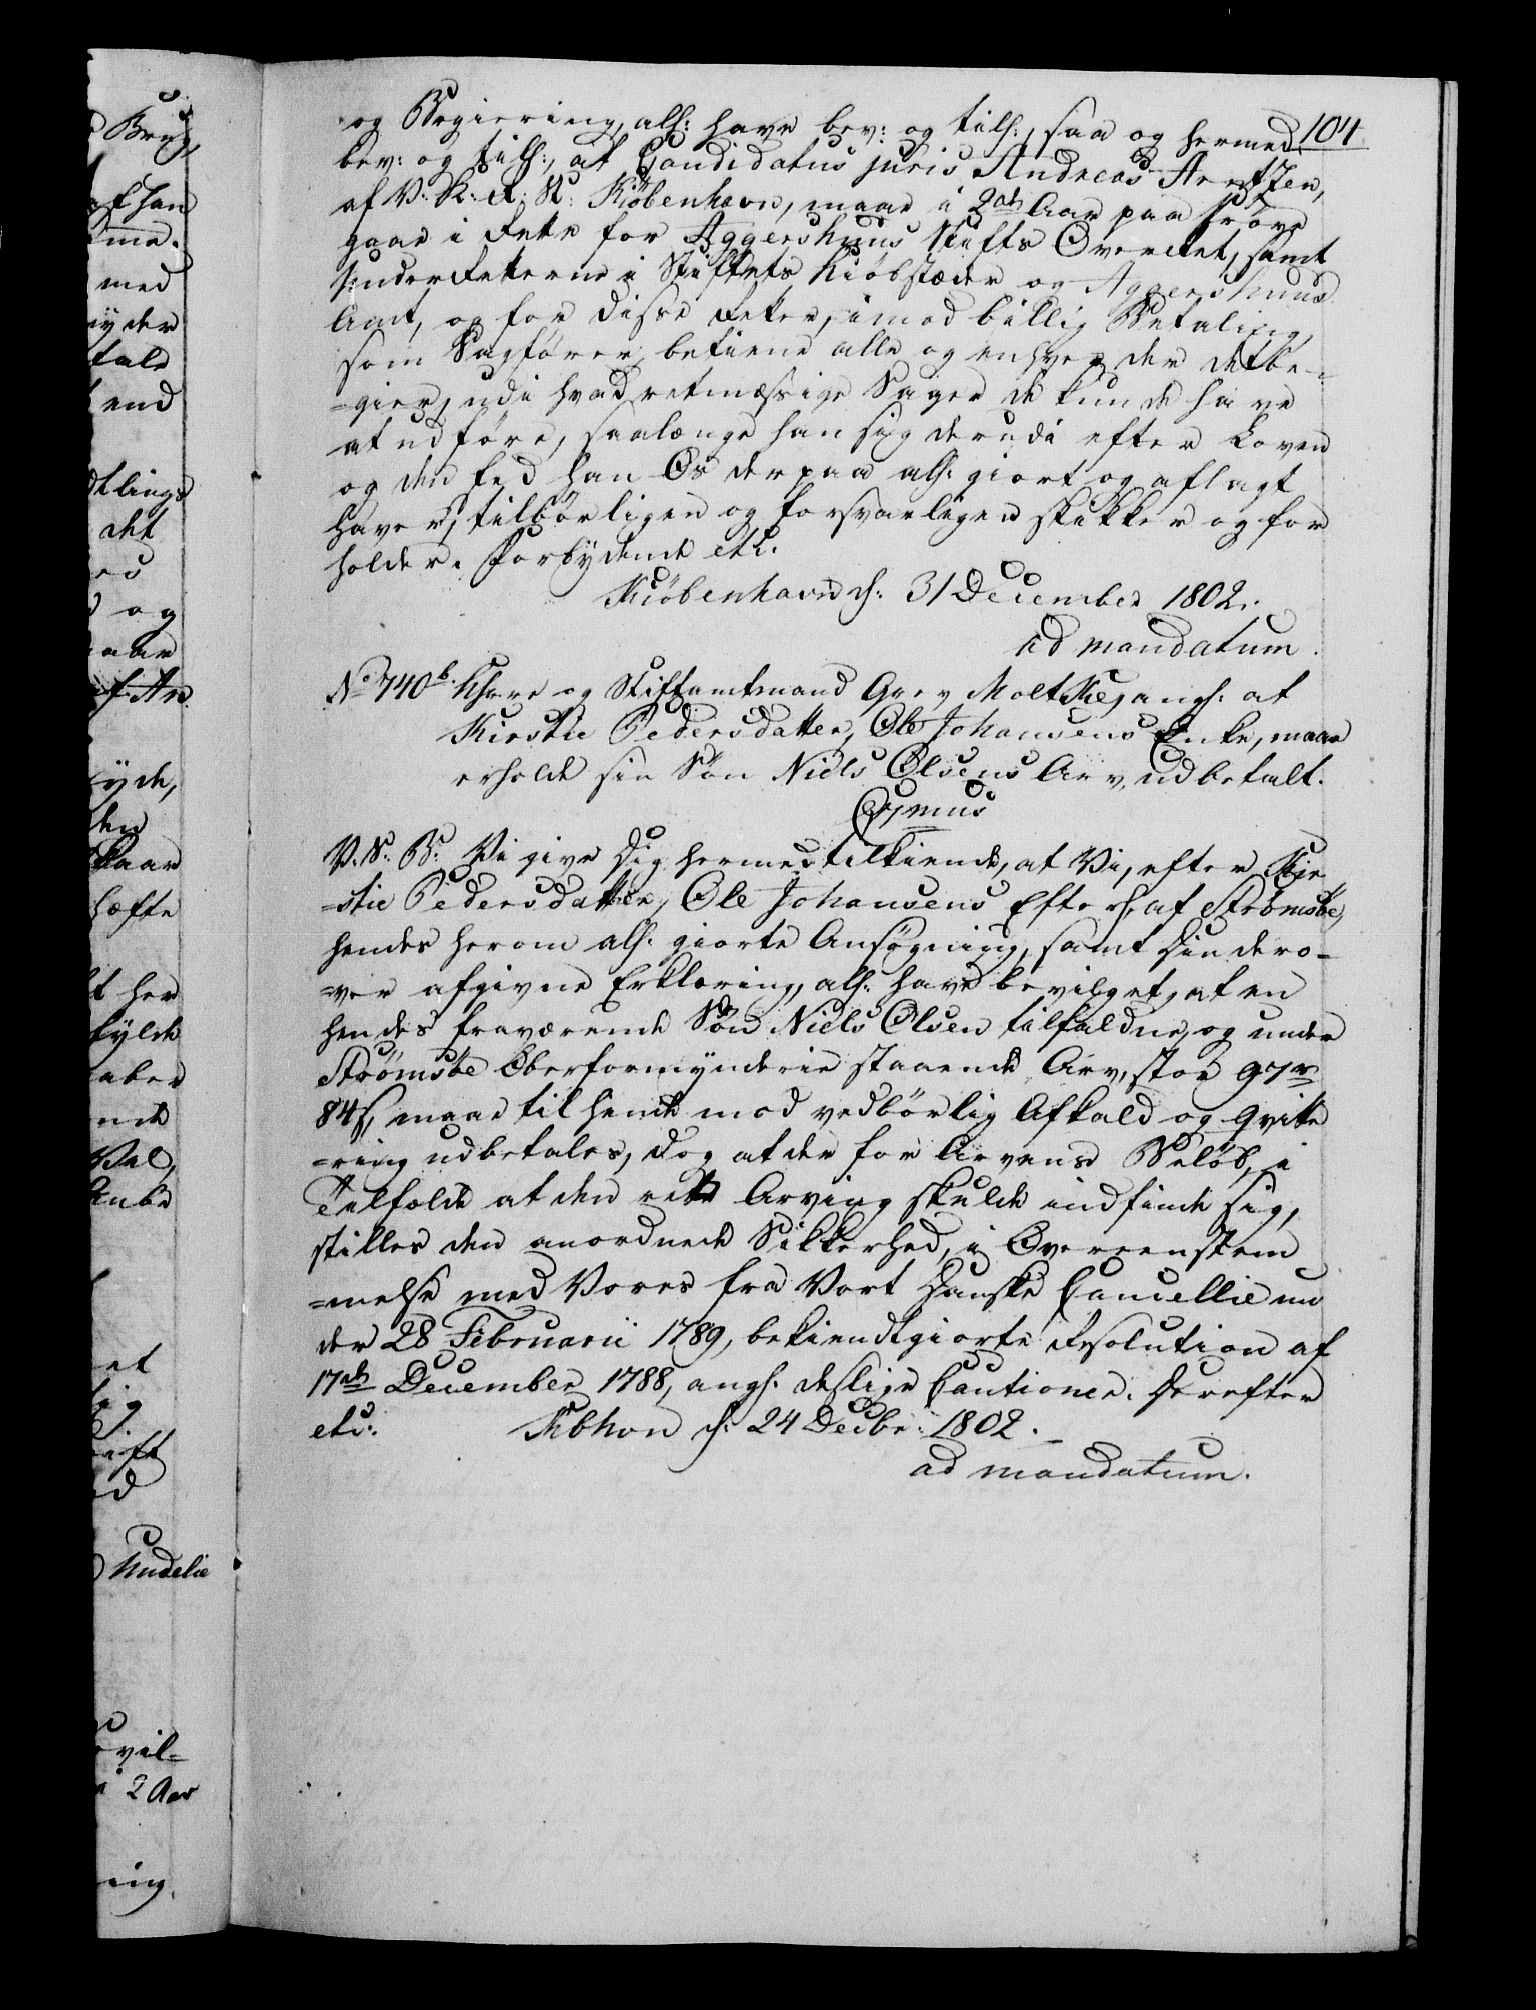 104
og Begiering, alh: have bev: og tilh:, saa og hermed
bev: og tilh:, at Candidatus juris Andreas Arntzen,
af V: K: R: St: Kiøbenhavn, maae i 2de Aar paa Prøve
gaae i Rette for Aggershuus Stifts Overret, samt
Underretterne i Stiftets Kiøbstæder og Aggershuus
Amt, og for disse Retter, imod billig Betaling,
som Sagfører, betiene alle og enhver der det be-
=gier, udi hvad retmæssige Sager de kunde have
at udføre, saalænge han sig derudi efter Loven
og den Eed han Os derpaa alh: giort og aflagt
haver, tilbørligen og forsvarligen skikker og for
holder. Forbydende etc.
Kiøbenhavn d: 31 December 1802.
ad mandatum.
No 740b. Khrre og Stiftamtmand Grev Moltke, angh: at
Kirstie Pedersdatter, Ole Johansens Enke, maae
erholde sin Søn Niels Olsens Arv, udbetalt.
C7mus
V. S: B: Vi give Dig hermed tilkiende, at Vi, efter Kir
=stie Pedersdatter, Ole Johansens Efterl: af Strømsøe,
hendes herom alh: giorte Ansøgning, samt Din dero-
=ver afgivne Erklæring, alh: have bevilget, at en
hendes fraværende Søn Niels Olsen tilfaldne, og under
Strømsøe Oberformynderie staaende Arv, stor 97 rd
84 s, maae til hende mod vedbørlig Afkald og Qvitte
=ring udbetales, dog at der for Arvens Beløb, i
Tilfælde at den rette Arving skulde indfinde sig,
stilles den anordnede Sikkerhed, i Overeenstem
=melse med Vores fra Vort Danske Cancellie un
der 28 Februarii 1789, bekiendtgiorte Resolution af
17de December 1788, angh: deslige Cautioner. Derefter
etc: Kbhvn d: 24 Decbr: 1802.
ad mandatum.